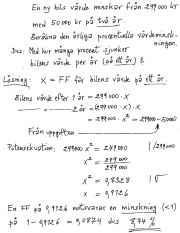 En ny bils värde minskar från 299 000 kr
med 50 000 kr på två år.
Beräkna den årliga procentuella värdeminsk-
ningen.
Dvs: Med hur många procent sjunker
bilens värde per år (på ett år)?
Lösning: X = FF för bilens värde på ett år.
Bilens värde efter 1 år = 299 000 · x
2 år = (299 000 · x) · x
= 299 000 · x² = 299 000 - 50 000
Från uppgiften
Potensekvation: 299 000 x² = 249 000 | /299 000
x² = 249 000 / 299 000
x² = 0,8328 | √
x = 0,9126
En FF på 0,9126 motsvarar en minskning (<1)
på 1 - 0,9126 = 0,0874 dvs 8,74 %